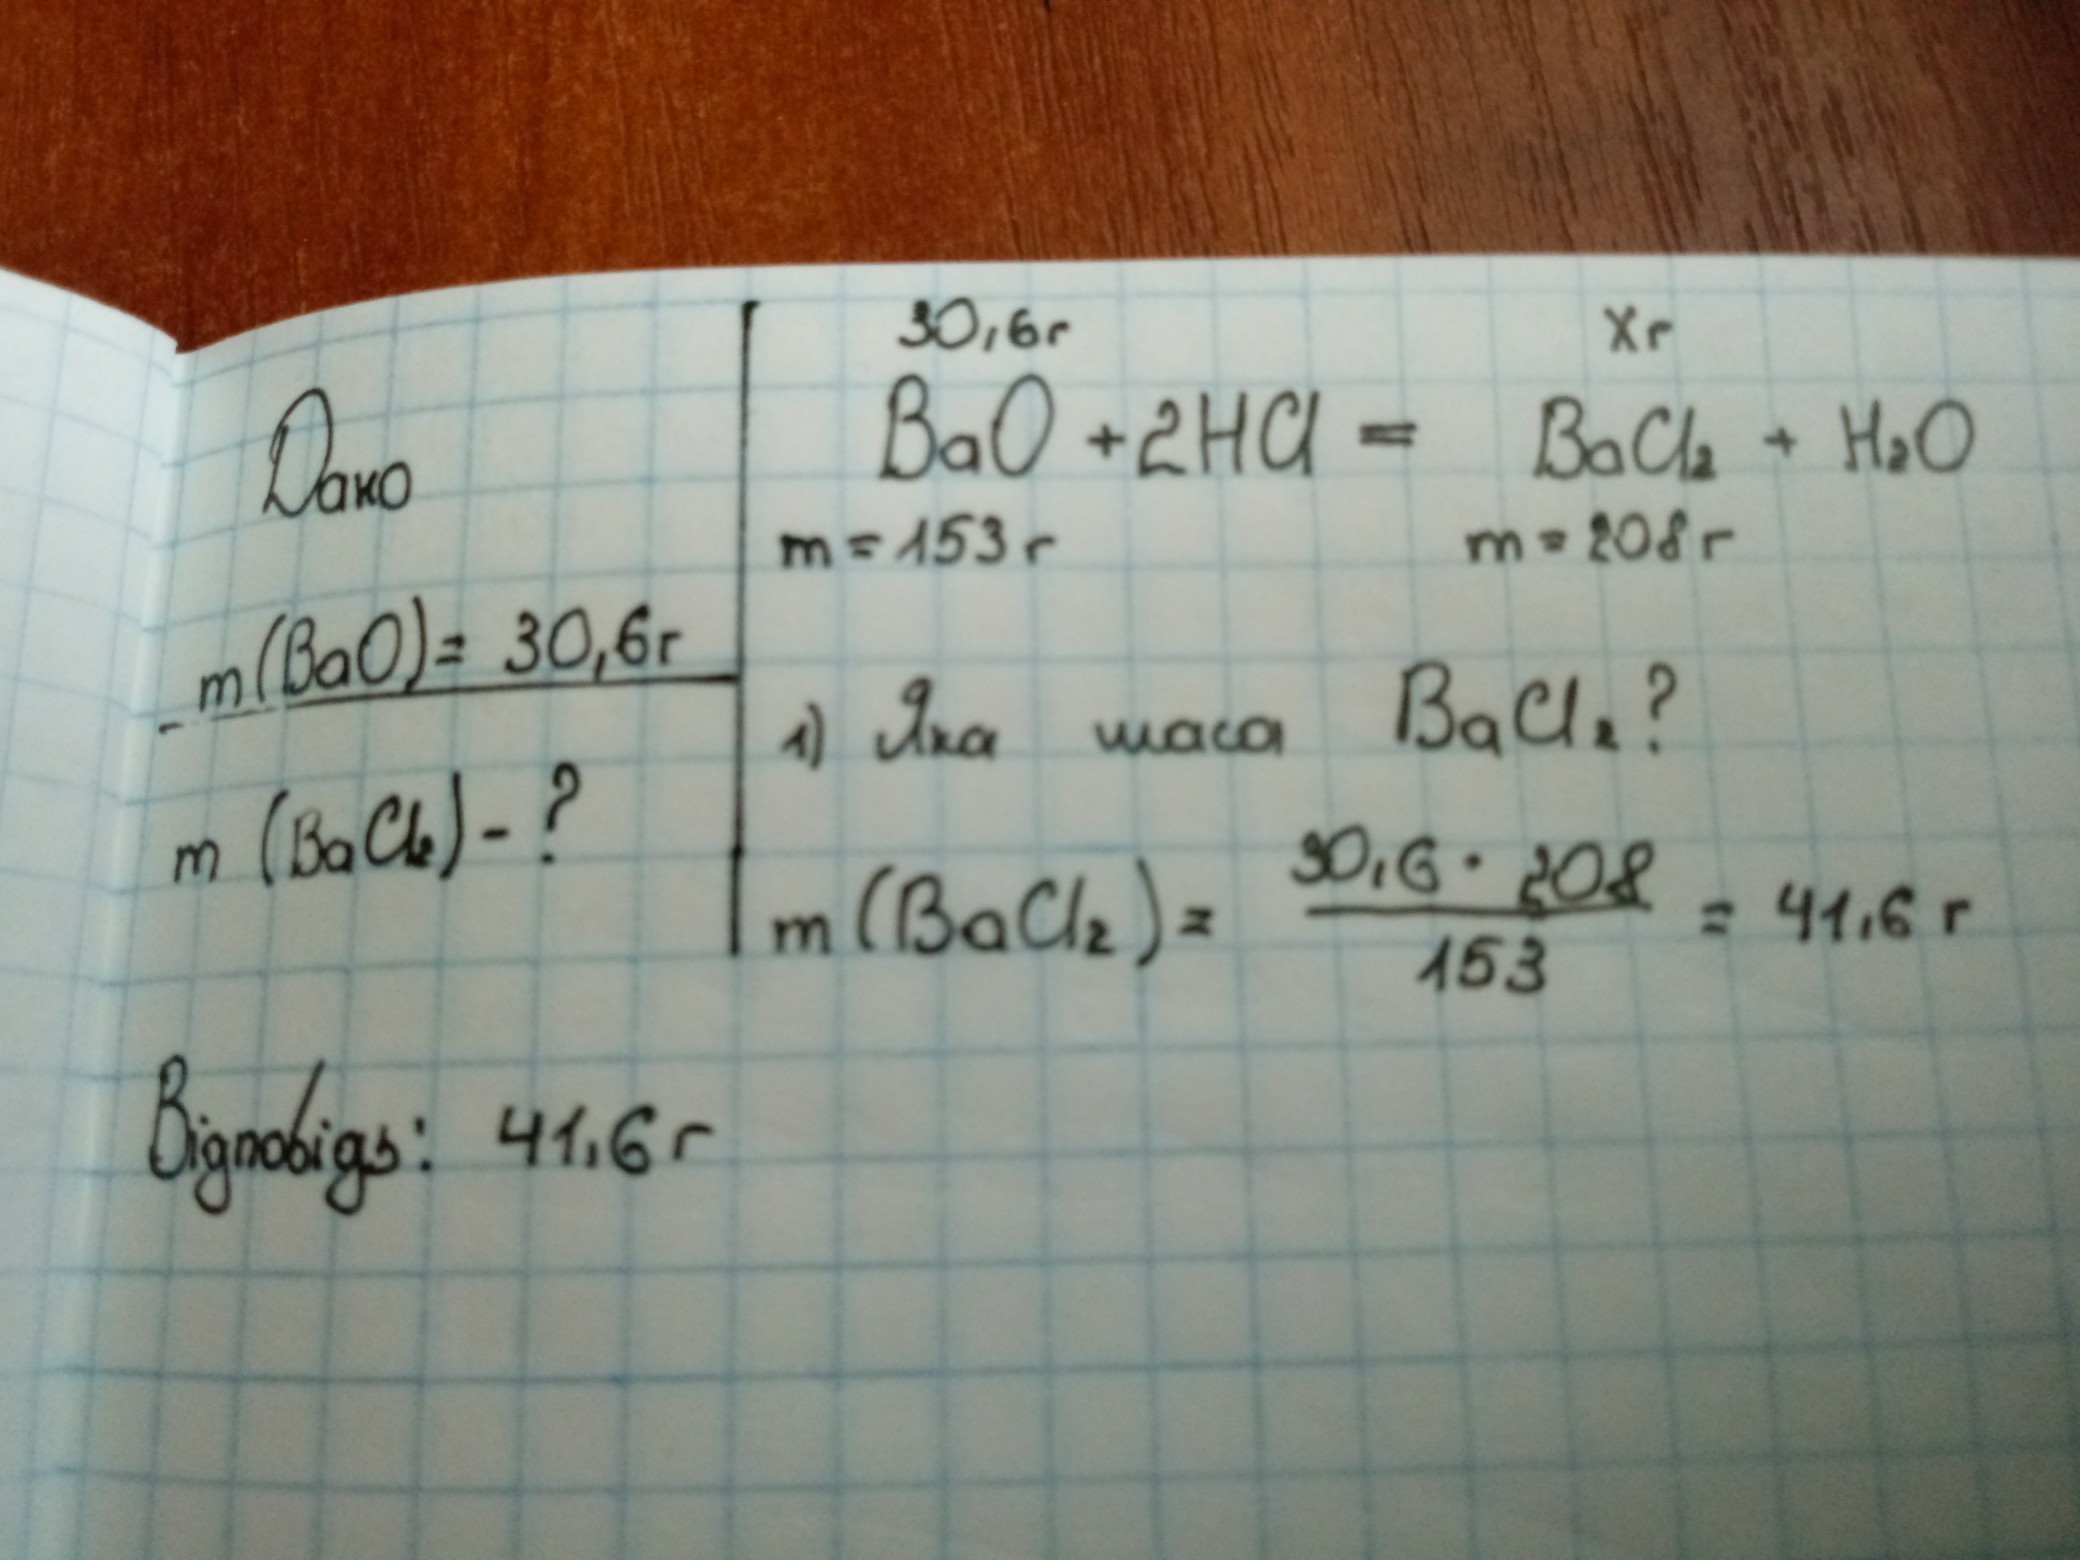 Дано
m(BaO)= 30,6г
m (BaCl₂) - ?
30,6г Xг
BaO + 2HCl = BaCl₂ + H₂O
m = 153 г m = 208 г
1) Яка маса BaCl₂?
m(BaCl₂) = 30,6 · 208 / 153 = 41,6 г
Відповідь: 41,6 г